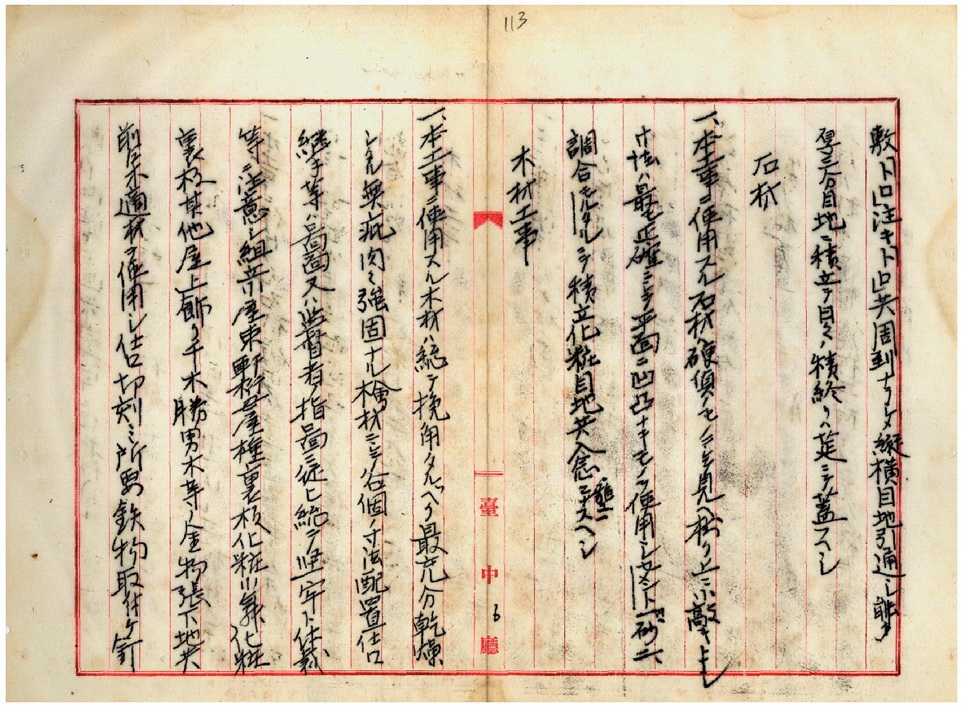 113
敷トロ注キトロ共周到ナラシメ縦横目地引通シ能ク
厚三分目地ニ積立テ日々ノ積終リハ莚ニテ蓋スヘシ
石材
一、本工事ニ使用スル石材ハ硬質ノモノニシテ見ヘ掛リ上ニ小敲キトシ
寸法ハ最モ正確ニシテ平面ニ凹凸ナキモノヲ使用シセメント一砂二
調合モルタルニテ積立化粧目地共入念ニナスヘシ
木材工事
一、本工事ニ使用スル木材ハ総テ挽角タルヘク最充分乾燥
シタル無疵肉々強固ナル檜材ニシテ各個ノ寸法配置仕口
継手等ハ図面又ハ監督者指図ニ従ヒ総テ堅牢ト体裁
等ニ注意シ組立小屋束軒桁母屋棰裏板化粧小舞化粧
裏板其他屋上飾リ千木勝男木等ノ金物張下地共
前記木適材ヲ使用シ仕口切刻ミ所要鉄物取付ケ釘
臺中廳
6